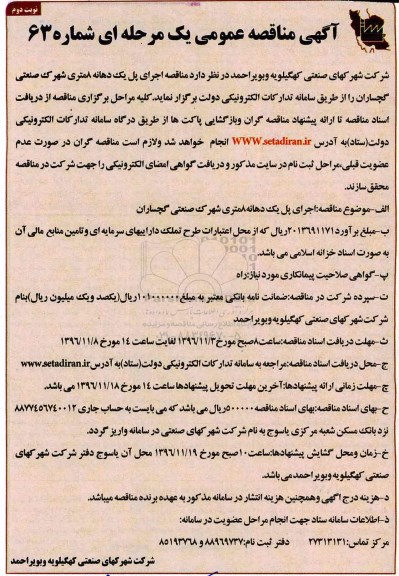 نوبت دوم
آگهی مناقصه عمومی یک مرحله ای شماره ۶۳
شرکت شهرکهای صنعتی کهگیلویه وبویراحمد در نظر دارد مناقصه اجرای پل یک دهانه ۸متری شهرک صنعتی
گچساران را از طریق سامانه تدارکات الکترونیکی دولت برگزار نماید.کلیه مراحل برگزاری مناقصه از دریافت
اسناد مناقصه تا ارائه پیشنهاد مناقصه گران وبازگشایی پاکت ها از طریق درگاه سامانه تدارکات الکترونیکی
دولت(ستاد)به آدرس WWW.setadiran.ir انجام خواهد شد ولازم است مناقصه گران در صورت عدم
عضویت قبلی،مراحل ثبت نام در سایت مذکور و دریافت گواهی امضای الکترونیکی را جهت شرکت در مناقصه
محقق سازند.
الف-موضوع مناقصه:اجرای پل یک دهانه۸متری شهرک صنعتی گچساران
ب-مبلغ برآورد۲۰۱۳۶۹۱۱۷۱ریال که از محل اعتبارات طرح تملک داراییهای سرمایه ای وتامین منابع مالی آن
به صورت اسناد خزانه اسلامی می باشد.
پ-گواهی صلاحیت پیمانکاری مورد نیاز:راه
ت-سپرده شرکت در مناقصه:ضمانت نامه بانکی معتبر به مبلغ۱۰۱۰۰۰۰۰۰ریال(یکصد ویک میلیون ریال)بنام
شرکت شهرکهای صنعتی کهگیلویه وبویراحمد
ث-مهلت دریافت اسناد مناقصه:ساعت۸صبح مورخ۱۳۹۶/۱۱/۳ لغایت ساعت ۱۴ مورخ ۱۳۹۶/۱۱/۸
ج-محل دریافت اسناد مناقصه:مراجعه به سامانه تدارکات الکترونیکی دولت(ستاد)به آدرسwww.setadiran.ir
چ-مهلت زمانی ارائه پیشنهادها:آخرین مهلت تحویل پیشنهادها ساعت ۱۴ مورخ ۱۳۹۶/۱۱/۱۸ می باشد.
ح-بهای اسناد مناقصه:بهای اسناد مناقصه۵۰۰۰۰۰ریال می باشد که می بایست به حساب جاری ۸۸۷۷۴۵۶۷۴۰۰۱۲
نزد بانک مسکن شعبه مرکزی یاسوج به نام شرکت شهرکهای صنعتی در سامانه واریز گردد.
خ-زمان ومحل گشایش پیشنهادها:ساعت۱۰صبح مورخ ۱۳۹۶/۱۱/۱۹ محل آن یاسوج دفتر شرکت شهرکهای
صنعتی کهگیلویه وبویراحمد می باشد.
د-هزینه درج آگهی وهمچنین هزینه انتشار در سامانه مذکور به عهده برنده مناقصه میباشد.
ذ-اطلاعات سامانه ستاد جهت انجام مراحل عضویت در سامانه:
مرکز تماس:۲۷۳۱۳۱۳۱ دفتر ثبت نام:۸۸۹۶۹۷۳۷ و ۸۵۱۹۳۷۶۸
شرکت شهرکهای صنعتی کهگیلویه وبویراحمد